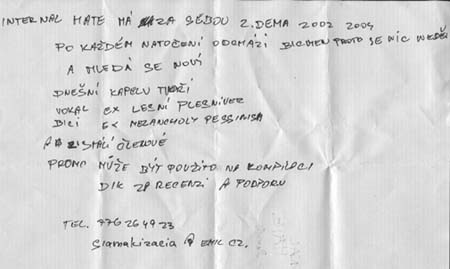 INTERNAL MATE MÁ ZA SEBOU 2. DEMA 2002 2004
PO KAŽDÉM NATOČENÍ ODCHÁZÍ PROTO SE NIC
A HLEDÁ SE NOVÍ
DNEŠNÍ KAPELU TVOŘÍ
VOKAL EX LESNÍ PLESNIVEC
BICI EX MELANCHOLY PESSIMISM
ČLENOVÉ
PROMO MŮŽE BÝT POUŽITO NA KOMPILACI
DIK ZA RECENZI A PODPORU
TEL. 776 26 49 23
@ EMIL CZ.